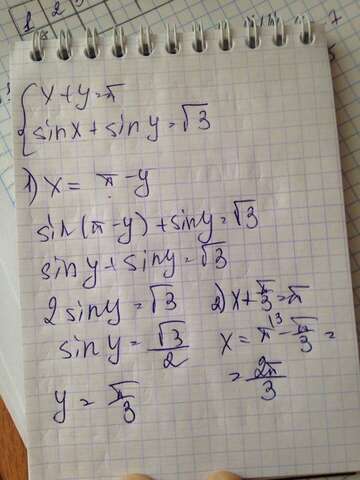 1 2
7
{ x + y = π
sin x + sin y = √3
1) x = π - y
sin(π - y) + sin y = √3
sin y + sin y = √3
2 sin y = √3
sin y = √3/2
y = π/3
2) x + π/3 = π
x = π^{\3} - π/3 =
= 2π/3